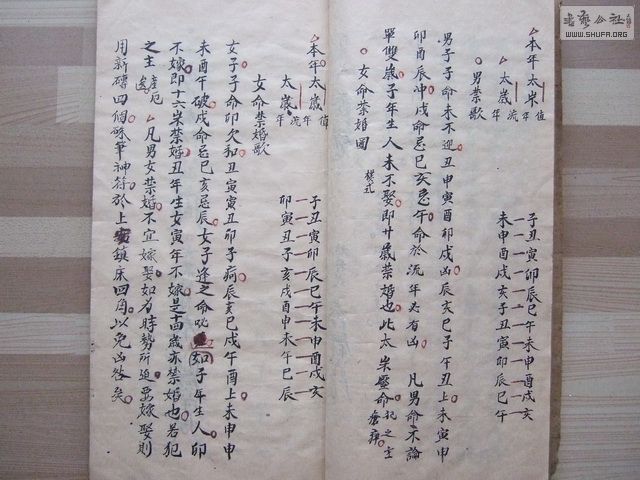 本年太岁值
太岁流年
子丑寅卯辰巳午未申酉戌亥
未申酉戌亥子丑寅卯辰巳午
男禁歌
男子子命未不迎丑申寅酉卯戌凶辰亥巳子午丑上未寅申
卯酉辰冲戌命忌巳亥忌午命於流年必有凶 凡男命不論
單雙歲子年生人未不娶即廿歲禁婚也此太岁盤命犯之主
女命禁婚圖
本年太歲值
太歲流年
子丑寅卯辰巳午未申酉戌亥
卯寅丑子亥戌酉申未午巳辰
女命禁婚歌
女子子命卯欠和丑寅寅丑卯子病辰亥巳戌午酉上未申申
未酉午破戌命忌巳亥忌辰女子逢之命如子年生人卯
不嫁即十六岁禁婚丑年生女寅年不嫁是十四歲亦禁婚也若犯
之主產厄凡男女禁婚不宜嫁娶如為時勢所迫要嫁娶則
用新磚四個硃筆神符於上鎮床四角以免凶咎矣
書藝公社
WWW.SHUFA.ORG